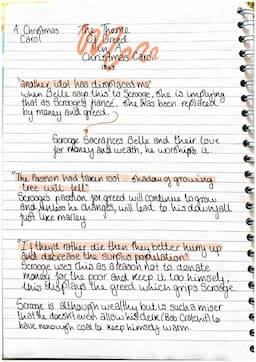 A Christmas
Carol
The Theme
Of Greed
In A
Christmas Carol
"another idol has displaced me"
when Belle said this to Scrooge, she is implying
that as Scrooge's fiancé, she has been replaced
by money and greed.
Scrooge Sacrafices Belle and their love
for money and wealth, he worships it.
"The Passion had taken root... shadow of growing
tree will fell"
Scrooge's passion for greed will continue to grow
and unless he changes, will lead to his downfall
just like marley
"If they'd rather die then they better hurry up
and decrease the surplus population"
Scrooge uses this as a reason not to donate
money for the poor and keep it too himself,
this displays the greed which grips Scrooge.
Scrooge is although wealthy but is such a miser
that he doesn't even allow his clerk (Bob Cratchit) to
have enough coal to keep himself warm.